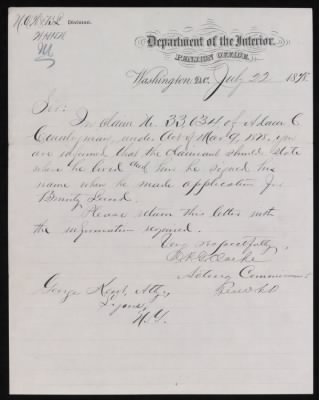 Division.
Department of the Interior,
PENSION OFFICE,
Washington, D.C. July 22 1878
Sir:
In claim No. 33,634 of Adam C.
Countryman, under Act of Mar 9, 1878, you
are informed that the claimant should state
where he lived and how he signed his
name when he made application for
Bounty Land.
Please return this letter with
the information required.
Very respectfully,
Clarke
Acting Commissioner
George Kent, Atty,
Lyons,
N.Y.